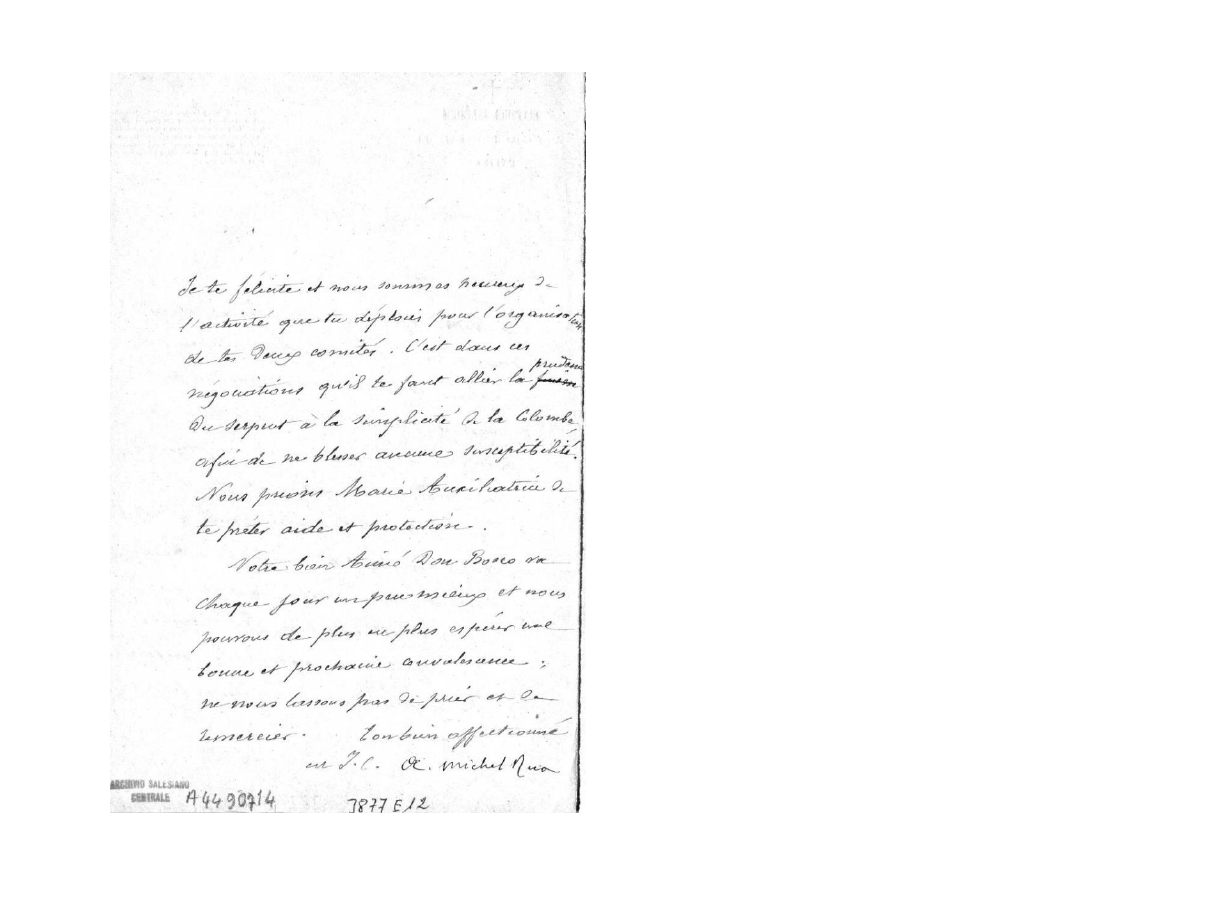 Je te félicite et nous sommes heureux de
l'activité que tu déploies pour l'organisation
de tes deux comités. C'est dans ces
négociations qu'il te faut allier la prudence
du serpent à la simplicité de la Colombe,
afin de ne blesser aucune susceptibilité.
Nous prions Marie Auxiliatrice de
te prêter aide et protection.
Notre bien Aimé Don Bosco va
chaque jour un peu mieux et nous
pouvons de plus en plus espérer une
bonne et prochaine convalescence ;
ne nous lassons pas de prier et de
remercier. Ton bien affectionné
en J.C. Michel Rua
ARCHIVIO SALESIANO
CENTRALE A4490714 3877 E12